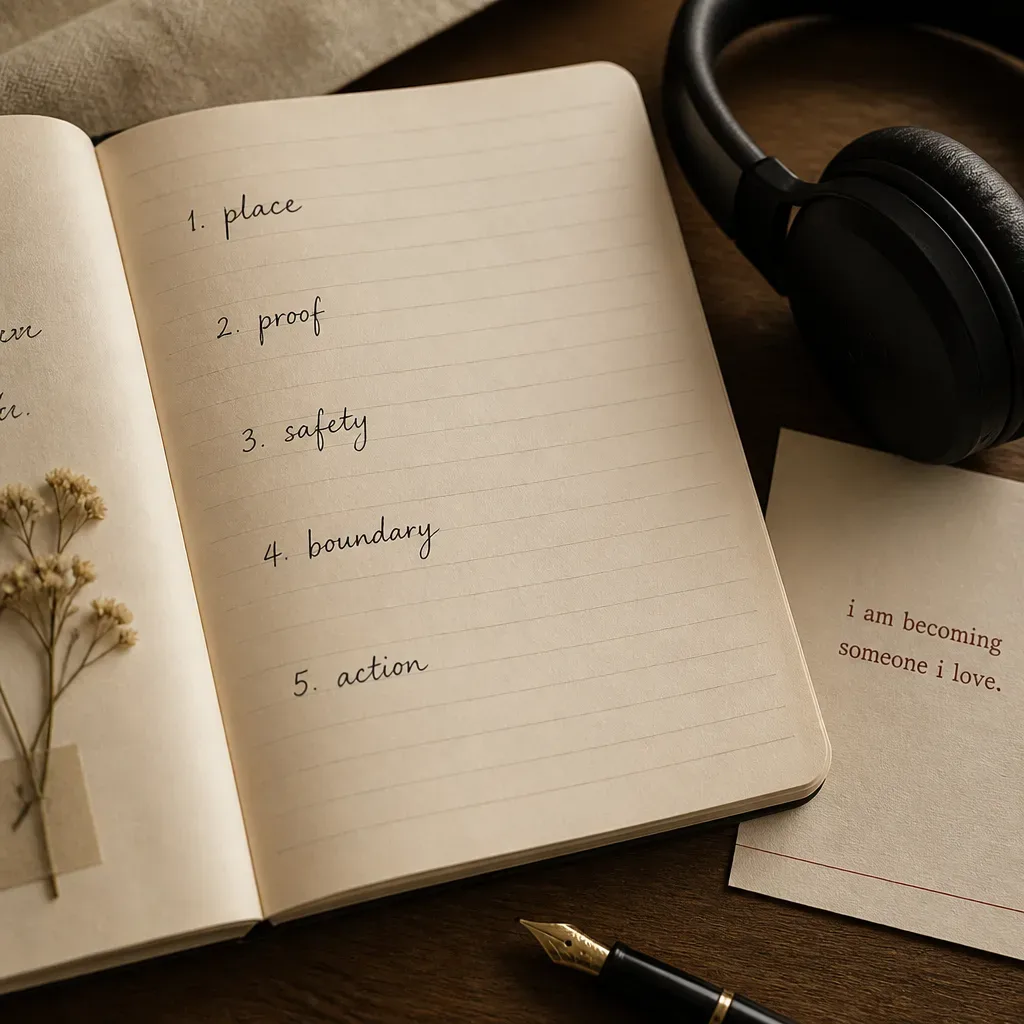 1. place
2. proof
3. safety
4. boundary
5. action
i am becoming
someone i love.